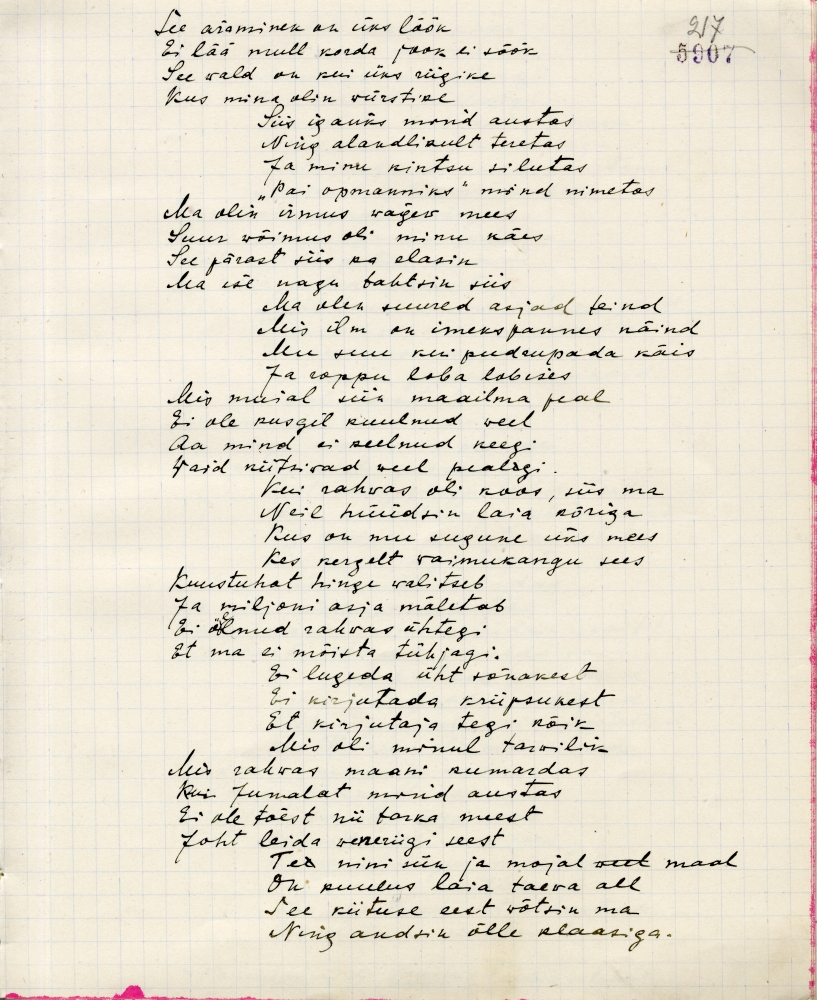 217
5907
See äraminek on üks löök
Ei lää mull korda jook ei söök
See wald on kui üks riigike
Kus mina olin würstike
Siis igaüks mind austas
Ning alandlikult teretas
Ja minu kintsu silutas
„Pai opmanniks" mind nimetas
Ma olin ilmus wägew mees
Suur wõimus oli minu käes
See pärast siis ka elasin
Ma ise nagu tahtsin siis
Ma olen suured asjad teind
Mis ilm on imekspannes näind
Mu suu kui pudrupada käis
Ja roppu loba lobises
Mis mujal siin maailma peal
Ei ole kusgil kuulnud weel
Aa mind ei keelnud keegi
Waid kiitsiwad weel pealegi.
Kui rahwas oli koos, siis ma
Neil hüüdsin laia kõriga
Kus on mu sugune üks mees
Kes kergelt waimukangu sees
Kuustuhat hinge walitseb
Ja miljoni asja mäletab
Ei öelnud rahwas ühtegi
Et ma ei mõista tühjagi.
Ei lugeda üht sõnakest
Ei kirjutada kriipsukest
Et kirjutaja tegi kõik
Mis oli minul tarwilik
Mis rahwas maani kumardas
Kui Jumalat mind austas
Ei ole tõest nii tarka meest
Joht leida weneriigi seest
Te nimi siin ja mojal weel maal
On kuulus laia taewa all
See kiituse eest wõtsin ma
Ning andsin õlle klaasiga.